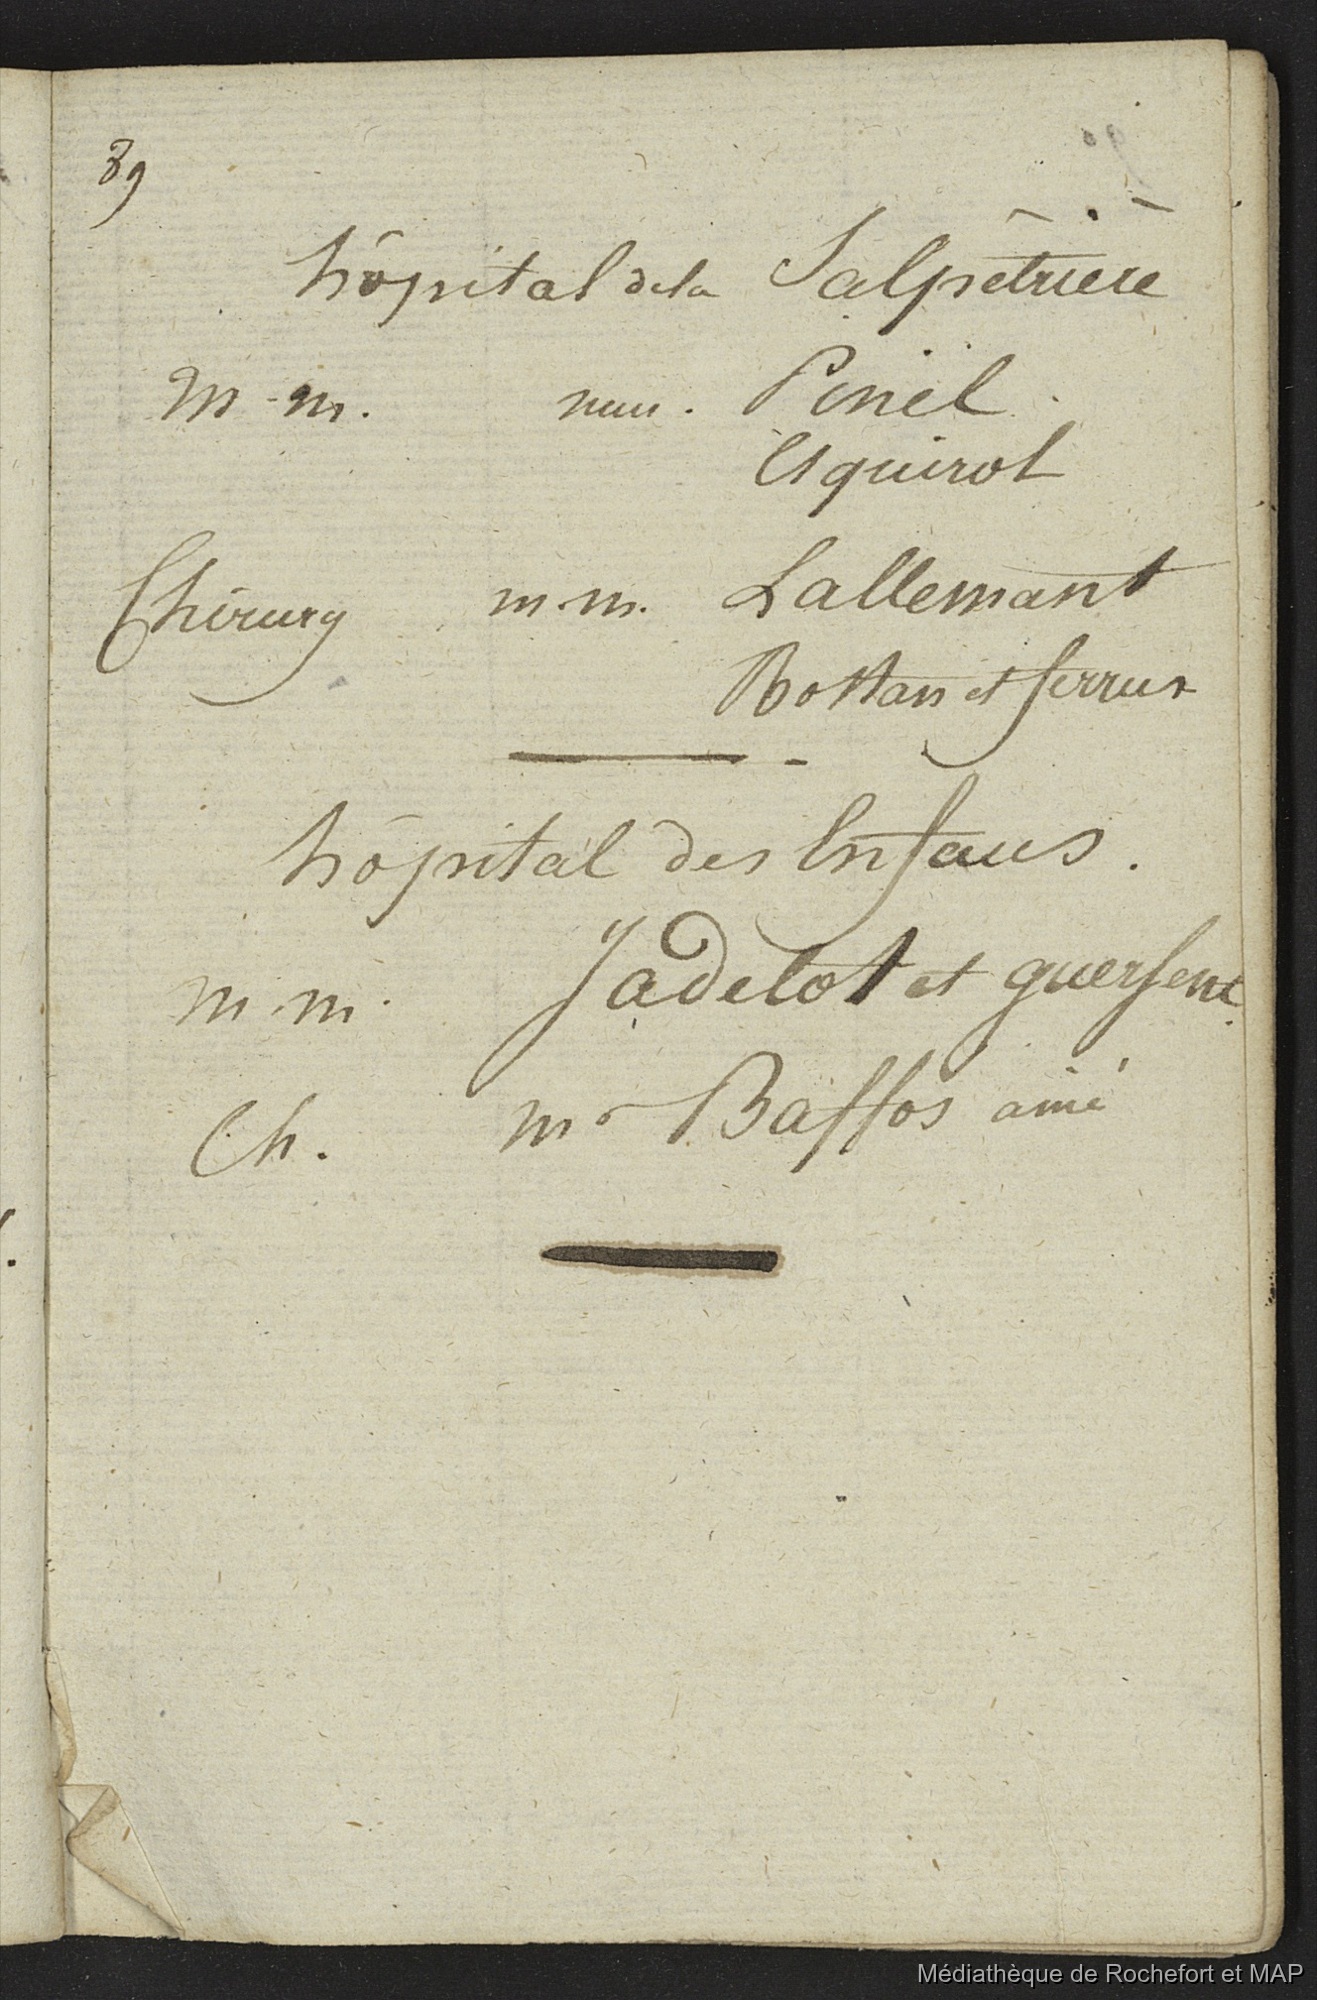 89
hôpital de la Salpêtrière
M. m. mm. Pinel.
Esquirol
Chirurg m. m. Lallemant
Rostan et ferrus
hôpital des Enfans.
m. m. Jadelot et guersent
Ch. mr Baffos ainé
Médiathèque de Rochefort et MAP